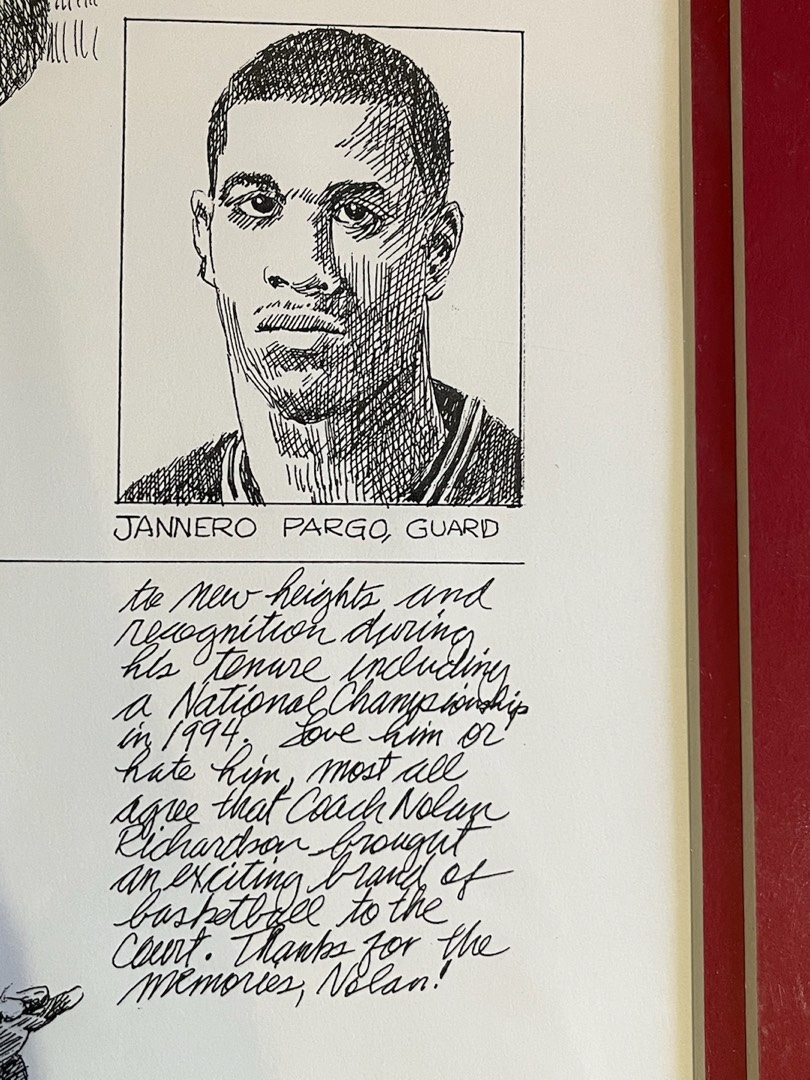 JANNERO PARGO, GUARD
to new heights and
recognition during
his tenure including
a National Championship
in 1994. Love him or
hate him, most all
agree that Coach Nolan
Richardson brought
an exciting brand of
basketball to the
court. Thanks for the
memories, Nolan!